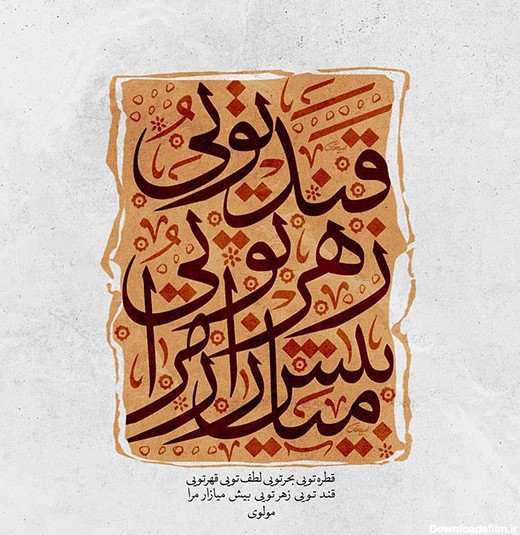 قند تویی
زهر تویی
بیش میازار مرا
قطره تویی بحر تویی لطف تویی قهر تویی
قند تویی زهر تویی بیش میازار مرا
مولوی
Downloadefilm.ir